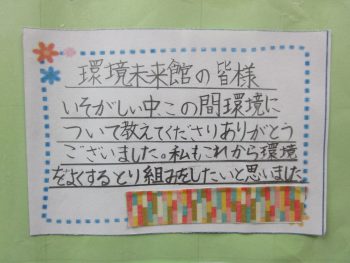 環境未来館の皆様
いそがしい中、この間環境に
ついて教えてくださりありがとう
ございました。私もこれから環境
をよくするとり組みをしたいと思いました